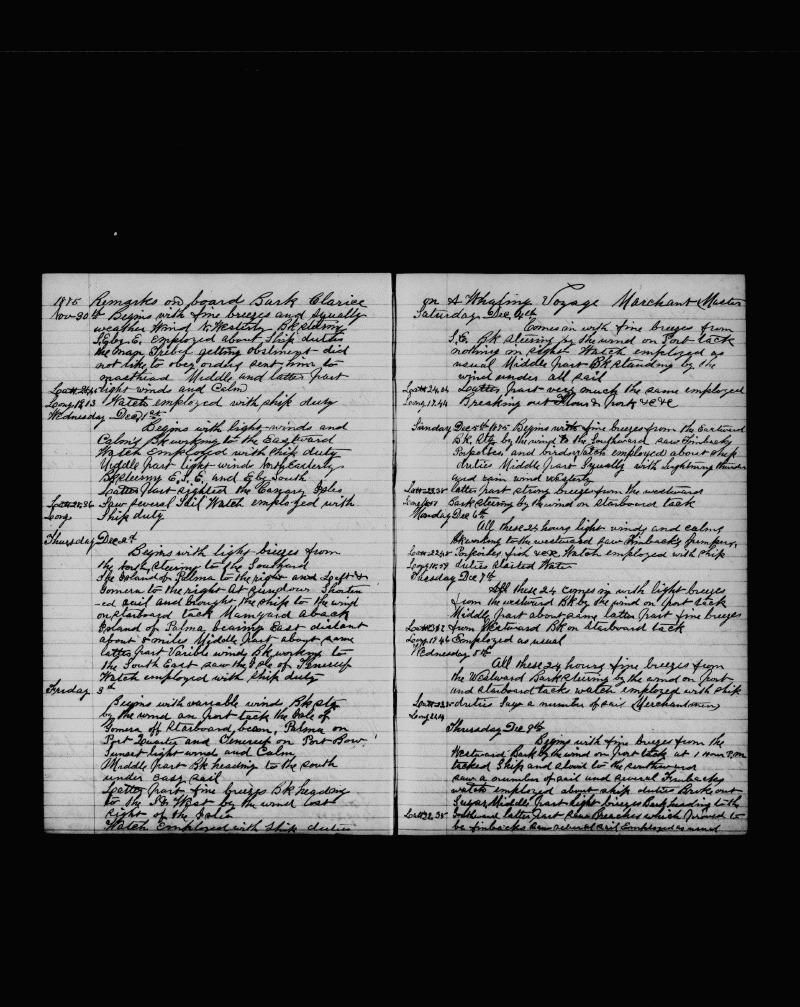 1885 Remarks on board Bark Clarice
Nov 30th Begins with fine breezes and squally
weather Wind N. Westerly Bk steering
S.E. by E. employed about ship duties
getting obstinent did
not like to ober orders sent him to
masthead Middle and latter part
light winds and Calm
Long 18,13 Watch employed with ship duty
Wednesday Dec 1st
Begins with light winds and
Calms Bk working to the Eastward
Watch Employed with ship duty
Middle part light winds Easterly
Bk steering E.S.E. and E by South
Latter part sighted the Canary Isles
Saw several Ship Watch employed with
Long Ship duty
Thursday Dec 2d
Begins with light breezes from
the north steering to the Southard
The Island of Palma to the right and Left &
Gomera to the right At sundown Shorten
-ed sail and brought the ship to the wind
on starboard tack Mainyard aback
Island of Palma bearing East distant
about 8 miles Middle part about same
latter part Varible winds Bk working to
the South East saw the Isle of
Watch employed with ship duty
Friday 3d
Begins with varable winds Bk stg
by the wind on port tack the Isle of
Gomera off Starboard beam, Palma on
Port Quarter and on Port Bow
Sunset light winds and Calm
Middle part Bk heading to the south
under easy sail
Latter part fine breezes Bk heading
to the West by the wind lost
sight of the Isles
Watch Employed with Ship duties
on A Whaling Voyage Marchant Master
Saturday Dec 4th
Comes in with fine breezes from
S.E. Bk steering by the wind on Port tack
nothing in sight Watch employed as
usual Middle part Bk standing by the
wind under all sail
Latt 24,04 Latter part very much the same employed
Long 17.44 Breaking out Flour & Pork &c &c
Sunday Dec 5th 1885 Begins with fine breezes from the Eastward
Bk. Stg by the wind to the Southward saw Finbacks
Porpoises, and birds watch employed about ship
duties Middle part Squally with Lightning thunder
and rain wind Westerly
latter part strong breezes from the westward
Bark steering by the wind on starboard tack
Monday Dec 6th
All these 24 hours light winds and calms
Bk working to the westward saw Finbacks Jumpers,
Porpoises fish &c &c Watch employed with ship
duties started Water
Tuesday Dec 7th
All these 24 comes in with light breezes
from the westward Bk by the wind on port tack
Middle part about same latter part fine breezes
from Westward Bk on starboard tack
Employed as usual
Wednesday 8th
All these 24 hours fine breezes from
the Westward Bark steering by the wind on Port
and starboard tacks watch employed with ship
duties Saw a number of sail (Merchantmen)
Thursday Dec 9th
Begins with fine breezes from the
Westward Bark by the wind on port tack at 1 Hour P.M
tacked Ship and stood to the southward
saw a number of sail and several Finbacks
watch employed about ship duties Broke out
Sugar Middle part light breezes Bark heading to the
Southward latter part saw Breaches which proved to
be finbacks saw several sail Employed as usual